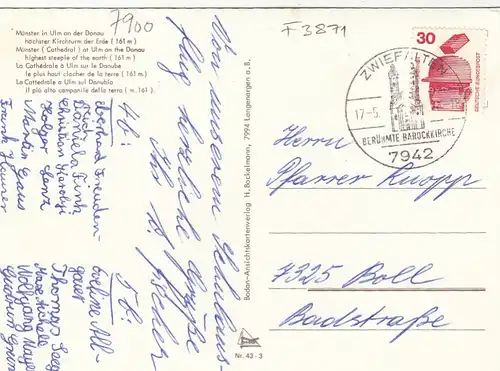 7900
F 3871
Münster in Ulm an der Donau
höchster Kirchturm der Erde (161 m)
Münster (Cathedral) at Ulm on the Donau
highest steeple of the earth (161 m)
La Cathédrale à Ulm sur le Danube
le plus haut clocher de la terre (161 m)
La Cattedrale a Ulm sul Danubio
il più alto campanile della terra (m. 161)
Von unserem Schulaus-
flug herzliche Grüße
Ihr
Eberhard Freuden-
Daniela Fink
Christian
Holger
Martin Gaus
Frank
Eveline All-
gaier
Thomas
Wolfgang Mayer
Gudrun
Bodan-Ansichtskartenverlag H. Bockelmann, 7994 Langenargen a. B.
Nr. 43 - 3
30
DEUTSCHE BUNDESPOST
ZWIEFALTEN
17-5.
BERÜHMTE BAROCKKIRCHE
7942
Herrn
Pfarrer Knopp
7325 Boll
Badstraße